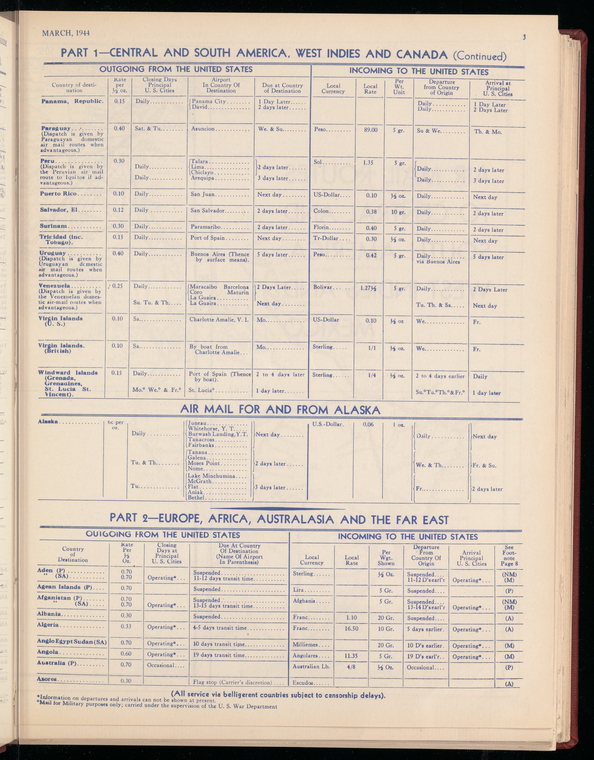 MARCH, 1944
3
PART 1—CENTRAL AND SOUTH AMERICA, WEST INDIES AND CANADA (Continued)
OUTGOING FROM THE UNITED STATES INCOMING TO THE UNITED STATES
Country of desti-nation Rate per ½ oz. Closing Days Principal U. S. Cities Airport In Country Of Destination Due at Country of Destination Local Currency Local Rate Per Wt. Unit Departure from Country of Origin Arrival at Principal U. S. Cities
Panama, Republic. 0.15 Daily Panama City 1 Day Later Daily 1 Day Later
David 2 days later Daily 2 Days Later
Paraguay 0.40 Sat. & Tu. Asuncion We. & Su. Peso 89.00 5 gr. Su & We. Th. & Mo.
(Dispatch is given by
Paraguayan domestic
air mail routes when
advantageous.)
Peru 0.30 Talara Sol 1.35 5 gr.
(Dispatch is given by Daily Lima 2 days later Daily 2 days later
the Peruvian air mail Chiclayo
route to Iquitos if ad- Daily Arequipa 3 days later Daily 3 days later
vantageous.)
Puerto Rico 0.10 Daily San Juan Next day US-Dollar 0.10 ½ oz. Daily Next day
Salvador, El 0.12 Daily San Salvador 2 days later Colon 0.38 10 gr. Daily 2 days later
Surinam 0.30 Daily Paramaribo 2 days later Florin 0.40 5 gr. Daily 2 days later
Trinidad (inc. 0.15 Daily Port of Spain Next day Tr-Dollar 0.30 ½ oz. Daily Next day
Tobago).
Uruguay 0.40 Daily Buenos Aires (Thence 5 days later Peso 0.42 5 gr. Daily 5 days later
(Dispatch is given by by surface means). via Buenos Aires
Uruguayan domestic
air mail routes when
advantageous.)
Venezuela 0.25 Daily Maracaibo Barcelona 2 Days Later Bolivar 1.27½ 5 gr. Daily 2 Days Later
(Dispatch is given by Coro Maturin
the Venezuelan domes- La Guaira
tic air-mail routes when Su. Tu. & Th. La Guaira Next day Tu. Th. & Sa. Next day
advantageous.)
Virgin Islands 0.10 Sa. Charlotte Amalie, V. I. Mo. US-Dollar 0.10 ½ oz We. Fr.
(U. S.)
Virgin Islands. 0.10 Sa. By boat from Mo. Sterling 1/1 ½ oz. We. Fr.
(British) Charlotte Amalie
Windward Islands 0.15 Daily Port of Spain (Thence 2 to 4 days later Sterling 1/4 ½ oz. 2 to 4 days earlier Daily
(Grenada, by boat).
Grenadines,
St. Lucia St. Mo.* We.* & Fr.* St. Lucia* 1 day later Su.*Tu.*Th.*&Fr.* 1 day later
Vincent).
AIR MAIL FOR AND FROM ALASKA
Alaska 6c per oz. Juneau U.S.-Dollar. 0.06 1 oz.
Whitehorse, Y. T.
Daily Burwash Landing, Y.T. Next day Daily Next day
Tanacross
Fairbanks
Tanana
Galena
Tu. & Th. Moses Point 2 days later We. & Th. Fr. & Sa.
Nome
Lake Minchumina
McGrath
Tu. Flat 3 days later Fr. 2 days later
Aniak
Bethel
PART 2—EUROPE, AFRICA, AUSTRALASIA AND THE FAR EAST
OUTGOING FROM THE UNITED STATES INCOMING TO THE UNITED STATES
Country of Destination Rate Per ½ Oz. Closing Days at Principal U. S. Cities Due At Country Of Destination (Name Of Airport In Parenthesis) Local Currency Local Rate Per Wgt. Shown Departure From Country Of Origin Arrival Principal U. S. Cities See Foot-note Page 8
Aden (P) 0.70 Suspended Sterling ½ Oz. Suspended (NM)
" (SA) 0.70 Operating* 11-12 days transit time 11-12 D's earl'r Operating* (M)
Agean Islands (P) 0.70 Suspended Lira 5 Gr. Suspended (P)
Afganistan (P) 0.70 Suspended Afghania 5 Gr. Suspended (NM)
(SA) 0.70 Operating* 13-15 days transit time 13-14 D's earl'r Operating* (M)
Albania 0.30 Suspended Franc 1.10 20 Gr. Suspended (A)
Algeria 0.33 Operating* 4-5 days transit time Franc 16.50 10 Gr. 5 days earlier Operating* (A)
Anglo Egypt Sudan (SA) 0.70 Operating* 10 days transit time Milliemes 20 Gr. 10 D's earlier Operating* (M)
Angola 0.60 Operating* 19 days transit time Angolares 11.35 5 Gr. 19 D's earl'r Operating* (M)
Australia (P) 0.70 Occasional Australian Lb. 4/8 ½ Oz. Occasional (P)
Azores 0.30 Flag stop (Carrier's discretion) Escudos (A)
(All service via belligerent countries subject to censorship delays).
*Information on departures and arrivals can not be shown at present.
*Mail for Military purposes only; carried under the supervision of the U. S. War Department